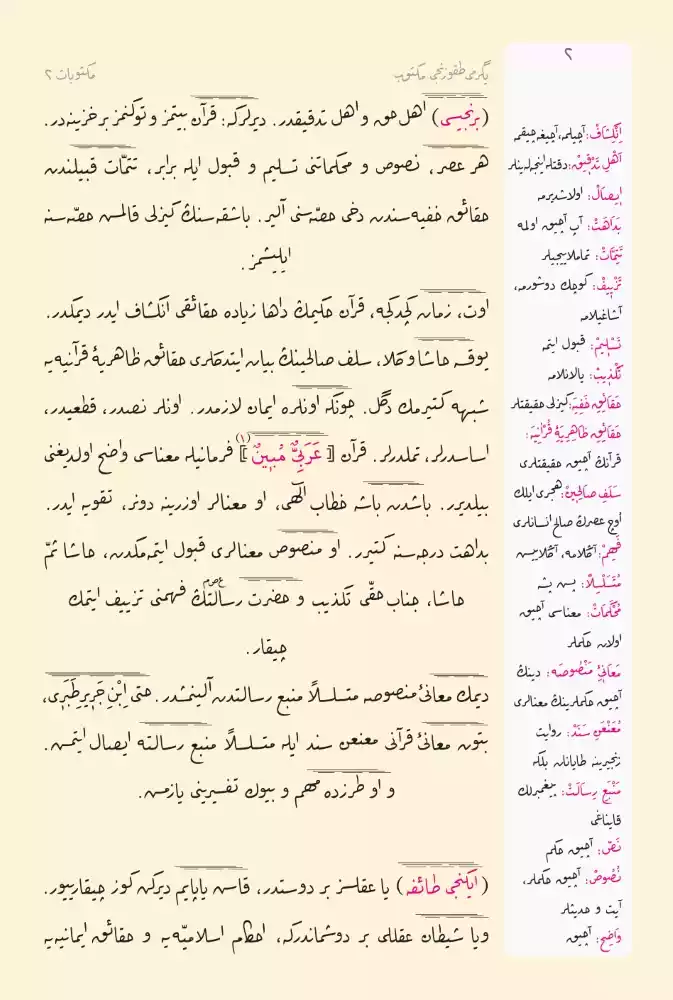 ٢
يگرمی طقوزنجی مكتوب
مكتوبات ٢
(برنجيسی) اهل حق و اهل تدقيقدر. ديرلركه: قرآن بيتمز و توكنمز بر خزينه‌در.
هر عصر، نصوص و محكماتنی تسليم و قبول ايله برابر، تتمّات قبيلندن
حقائق خفيه‌سندن دخی حصّه‌سنی آلير. باشقه‌سنڭ كيزلی قالمش حصّه‌سنه
ايليشمز.
اوت، زمان گچدكجه، قرآن حكيمڭ داها زياده حقائقی انكشاف ايدر ديمكدر.
يوقسه حاشا و كلا، سلف صالحينڭ بيان ايتدكلری حقائق ظاهريۀ قرآنيه‌يه
شبهه كتيرمك دگل. چونكه اونلره ايمان لازمدر. اونلر نصدر، قطعيدر،
اساسدرلر، تملدرلر. قرآن ﴿عَرَبِىٌّ مُبِينٌ﴾(١) فرمانيله معناسی واضح اولديغنی
بيلديرر. باشدن باشه خطاب الٰهی، او معنالر اوزرينه دونر، تقويه ايدر.
بداهت درجه‌سنه كتيرر. او منصوص معنالری قبول ايتمه‌مكدن، حاشا ثمّ
حاشا، جناب حقّی تكذيب و حضرت رسالتڭ (ع ص م) فهمنی تزييف ايتمك
چيقار.
ديمك معانئ منصوصه متسلسلًا منبع رسالتدن آلينمشدر. حتی اِبْنِ جَرِيرِ طَبَرِی،
بتون معانئ قرآنی معنعن سند ايله متسلسلًا منبع رسالته ايصال ايتمش.
و او طرزده مهم و بيوك تفسيرينی يازمش.
(ايكنجی طائفه) يا عقلسز بر دوستدر، قاش ياپايم ديركن كوز چيقارييور.
ويا شيطان عقللی بر دوشماندركه، احكام اسلاميّه‌يه و حقائق ايمانيه‌يه
اِنْكِشَافْ: آچيلمه، آچيغه چيقمه
اَهْلِ تَدْقِيقْ: دقتله اينجله‌ينلر
اِيصَالْ: اولاشديرمه
بَدَاهَتْ: آپ آچيق اولمه
تَتِمَّاتْ: تماملاييجيلر
تَزْيِيفْ: كوچك دوشورمه،
آشاغيلامه
تَسْلِيمْ: قبول ايتمه
تَكْذِيبْ: يالانلامه
حَقَائِقِ خَفِيَه: كيزلی حقيقتلر
حَقَائِقِ ظَاهِرِيَۀِ قُرْاٰنِيَه:
قرآنڭ آچيق حقيقتلری
سَلَفِ صَالِحِينْ: هجری ايلك
اوچ عصرڭ صالح انسانلری
فَهِمْ: آڭلامه، آڭلاييش
مُتَسَلْسِلًا: پش پشه
مُحْكَمَاتْ: معناسی آچيق
اولان حكملر
مَعَانِئِ مَنْصُوصَه: دينڭ
آچيق حكملرينڭ معنالری
مُعَنْعَنْ سَنَدْ: روايت
زنجيرينه طايانان بلگه
مَنْبَعِ رِسَالَتْ: پيغمبرلك
قايناغی
نَصّ: آچيق حكم
نُصُوصْ: آچيق حكملر،
آيت و حديثلر
وَاضِحْ: آچيق